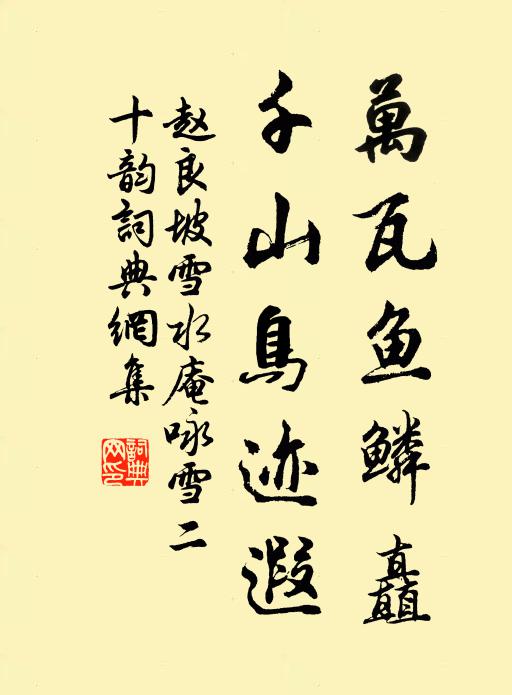 萬瓦鱼鳞矗
千山鳥迹遐
赵良坡雪水庵咏雪二
十韵詞典網集
詞典網印